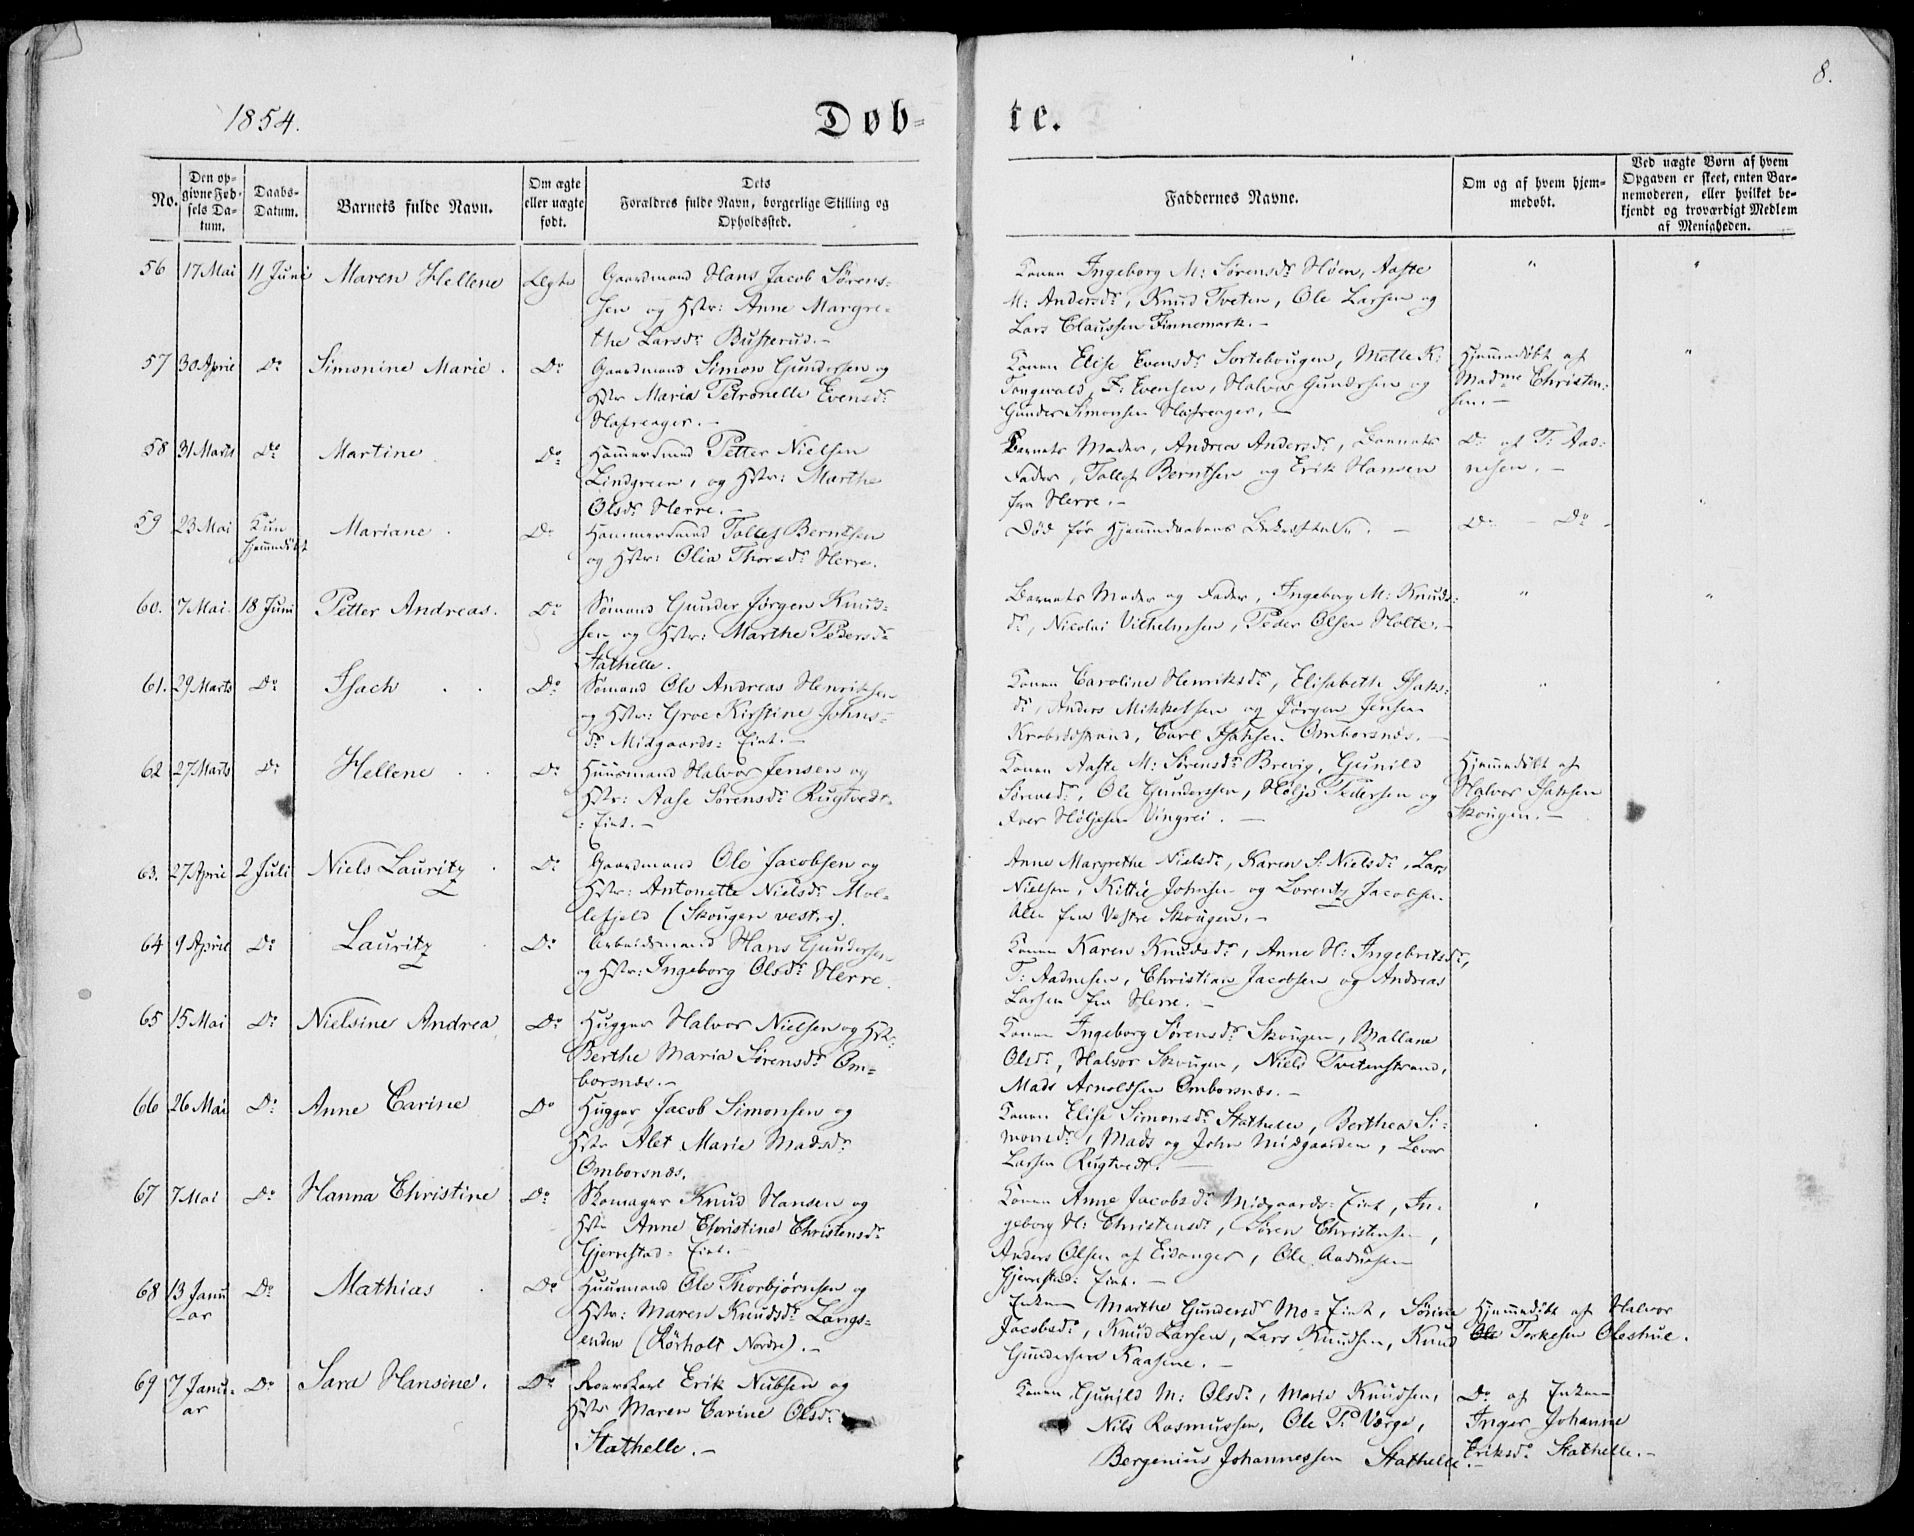 8.
1854.
Døb-
te.
No.
Den op-
givne Fød-
sels Da-
tum.
Daabs-
Datum.
Barnets fulde Navn.
Om ægte
eller uægte
født.
Dets
Forældres fulde Navn, borgerlige Stilling og
Opholdssted.
Faddernes Navne.
Om og af hvem hjem-
medøbt.
Ved uægte Børn af hvem
Opgaven er skeet, enten Bar-
nemoderen, eller hvilket be-
kjendt og troværdigt Medlem
af Menigheden.
56 17 Mai 11 Juni Maren Hellene Ægte Gaardmand Hans Jacob Sørens-
sen og Hstr: Anne Margre-
the Larsdr Busterud.-
Konen Ingeborg M: Sørensdr Høen, Aaste
M: Andersdr, Knud Tveten, Ole Larsen og
Lars Claussen Finnemark.-
57 30 April Do Simonine Marie. Do Gaardmand Simon Gundersen og
Hstr Maria Petronelle Evensdr
Hafreager.-
Konen Elise Evensdr Sortebougen, Molle K:
Tangvald, F: Evensen, Halvor Gundersen og
Gunder Simonsen Hafreager.-
Hjemmedøbt af
Madme Christen-
sen.-
58 31 Marts Do Martine Do Hammersmed Petter Nielsen
Lindgreen, og Hstr: Marthe
Olsdr Herre.-
Barnets Moder, Andrea Andersdr, Barnets
Fader, Tollef Berntsen og Erik Hansen
fra Herre.-
Do af T: Aad-
nesen.-
59 23 Mai Kun
hjemmedøbt Mariane. Do Hammersmed Tollef Berntsen
og Hstr: Olia Thorsdr Herre.
Død før Hjemmedaabens Bekræftelse.-
Do - Do -
60. 7 Mai. 18 Juni Petter Andreas. Do Sømand Gunder Jørgen Knud-
sen og Hstr: Marthe Pedersdr
Stathelle.
Barnets Moder og Fader, Ingeborg M: Knuds-
dr, Nicolai Vilhelmsen, Peder Olsen Holte.-
61. 29 Marts Do Isach Do Sømand Ole Andreas Henriksen
og Hstr: Groe Kirstine Johns-
dr Midgaards: Eiet.-
Konen Caroline Henriksdr, Elisabeth Isaks-
dr, Anders Mikkelsen og Jørgen Jensen
Krabbestrand, Carl Isaksen Omborsnæs.-
62 27 Marts Do Hellene Do Huusmand Halvor Jensen og
Hstr: Aase Sørensdr Rugtvedt-
: Eiet.-
Konen Aaste M: Sørensdr Brevig, Gunild
Sørensdr, Ole Gundersen, Hølje Pedersen og
Iver Høljesen Vingrei.-
Hjemmedøbt af
Halvor Isaksen
Skougen.-
63. 27 April 2 Juli Niels Lauritz Do Gaardmand Ole Jacobsen og
Hstr: Antonette Nielsdr Mol-
lefjeld (Skougen vestre).
Anne Margrethe Nielsdr, Karen S: Nielsdr, Lars
Nielsen, Kittil Johnsen og Lorentz Jacobsen
Alle fra Vestre Skougen.-
64 9 April Do Lauritz Do Arbeidsmand Hans Gundersen
og Hstr: Ingeborg Olsdr Herre.
Konen Karen Knudsdr, Anne H: Ingebretsdr,
T: Aadnesen, Christian Jacobsen og Andreas
Larsen fra Herre.-
65 15 Mai Do Nielsine Andrea Do Hugger Halvor Nielsen og Hstr:
Berthe Maria Sørensdr Om-
borsnæs.-
Konen Ingeborg Sørensdr Skougen, Mallane
Olsdr, Halvor Skougen, Niels Tvetenstrand,
Mads Arnoldsen Omborsnæs.-
66 26 Mai Do Anne Carine Do Hugger Jacob Simonsen og
Hstr Alet Marie Madsdr
Omborsnæs.
Konen Elise Simonsdr Stathelle, Berthea Si-
monsdr, Mads og John Midgaarden, Lever
Larsen Rugtvedt.-
67 7 Mai Do Hanna Christine Do Skomager Knud Hansen og
Hstr Anne Christine Christensdr
Gjerrestad: Eiet.-
Konen Anne Jacobsdr Midgaards: Eiet, In-
geborg H: Christensdr, Søren Christensen,
Anders Olsen af Eidanger, Ole Aadnesen
Gjerrestad: Eiet.-
68 13 Janu-
ar Do Mathias Do Huusmand Ole Thorbjørnsen og
Hstr: Maren Knudsdr Langs-
enden (Rørholt Nordre).-
Enken Marthe Gundersdr Mo: Eiet, Sørine
Jacobsdr, Knud Larsen, Lars Knudsen, Knud
Gundersen Kaasene.-
Hjemmedøbt af Halvor
Terkelsen Oleshue.
69 7 Janu-
ar Do Sara Hansine. Do Roerskarl Erik Nubsen og
Hstr Maren Carine Olsdr
Stathelle.-
Konen Gunild M: Olsdr, Marie Knudsen,
Nils Rasmussen, Ole P. Værge,
Bergenius Johannessen Stathelle.-
Do af Enken
Inger Johanne
Eriksdr Stathelle.-